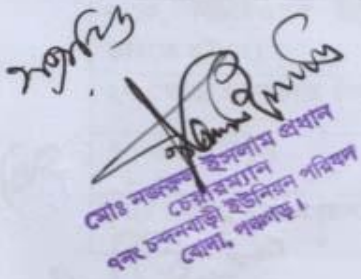 মোঃ নজরুল ইসলাম প্রধান
চেয়ারম্যান
৭নং চন্দনবাড়ী ইউনিয়ন পরিষদ
বোদা, পঞ্চগড়।